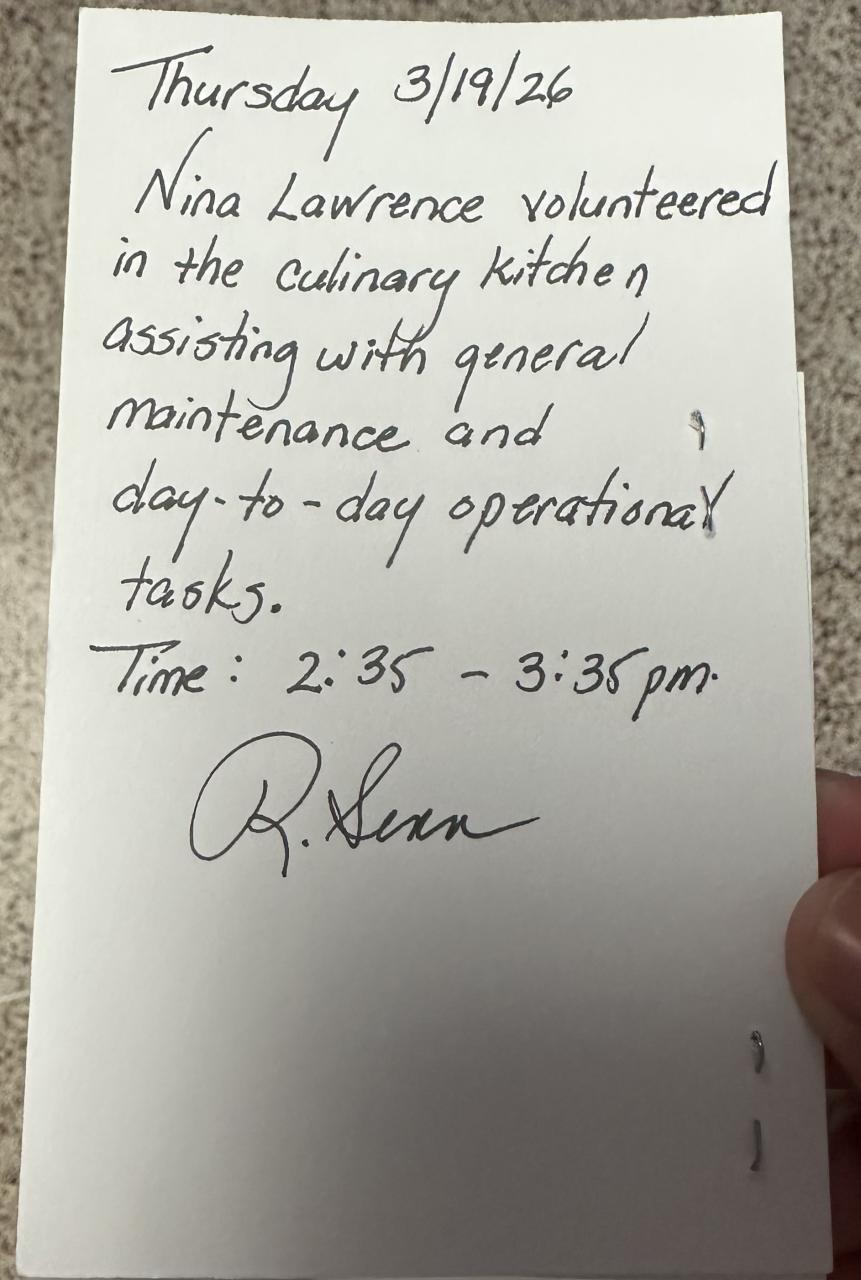 Thursday 3/19/26
Nina Lawrence volunteered
in the culinary kitchen
assisting with general
maintenance and
day-to-day operational
tasks.
Time: 2:35 - 3:35pm.
R. Senn